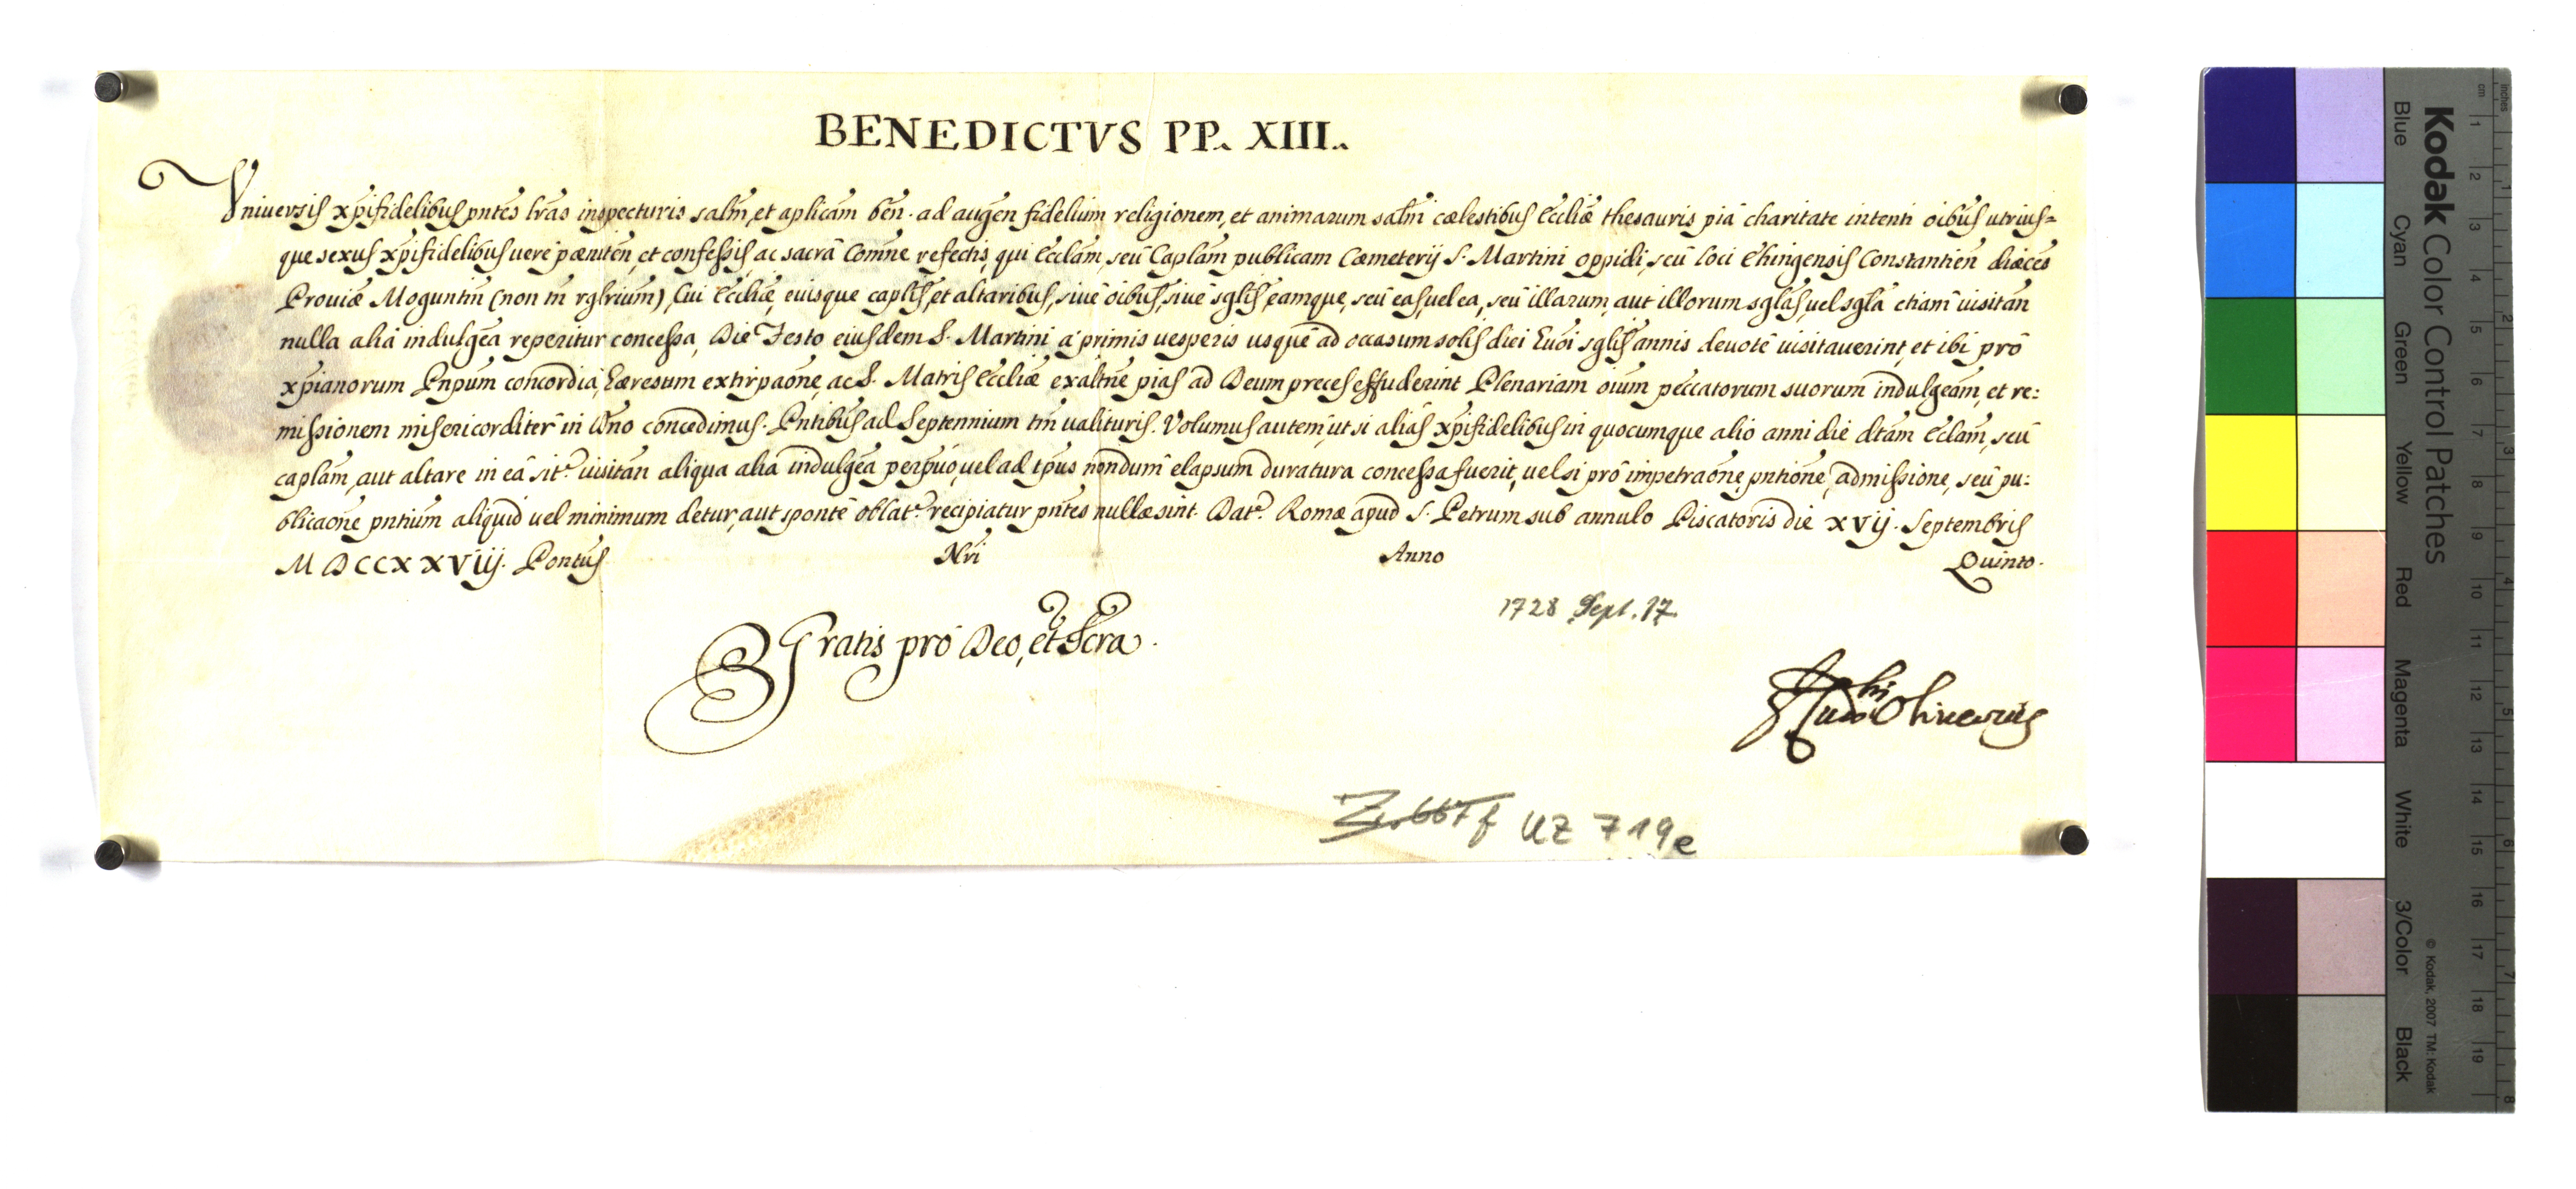 BENEDICTVS PP. XIII.
Vniversis xpifidelibus pntes lras inspecturis salm, et aplicam ben. ad augen fidelium religionem, et animarum salm cælestibus Eccliæ thesauris pia charitate intenti oibus utrius=
que sexus xpifidelibus vere pæniten, et confessis, ac sacra Comne refectis, qui Ecclam, seu Caplam publicam Cæmeterij S. Martini oppidi, seu loci Ehingensis Constantien diæces
Proviæ Moguntin (non tn rglrium), Cui Eccliæ, eiusque caplis, et altaribus, sive oibus, sive sglis, eamque, seu eas, vel ea, seu illarum, aut illorum sglas, vel sgla etiam visitan
nulla alia indulgea reperitur concessa, Die Festo eiusdem S. Martini a primis vesperis usque ad occasum solis diei huoi sglis annis devote visitaverint, et ibi pro
xpianorum Pnpum concordia, hæresum extirpaone, ac S. Matris Eccliæ exaltne pias ad Deum preces effuderint Plenariam oium peccatorum suorum indulgeam, et re:
missionem misericorditer in Dno concedimus. Pntibus ad Septennium tm valituris. Volumus autem, ut si alias xpifidelibus in quocumque alio anni die dtam Eclam, seu
caplam, aut altare in ea sit. visitan aliqua alia indulgea perpuo, vel ad tpus nondum elapsum duratura concessa fuerit, vel si pro impetraone, pntione, admissione, seu pu:
blicaone pntium aliquid vel minimum detur, aut sponte oblat. recipiatur pntes nullæ sint. Dat. Romæ apud S. Petrum sub annulo Piscatoris die xvij. Septembris
MDCCXXVIIJ. Pontus Nri Anno Quinto.
1728 Sept. 17.
Gratis pro Deo, et Scra.
Oliverius
UZ 719e
Kodak Color Control Patches
Blue Cyan Green Yellow Red Magenta White 3/Color Black
© Kodak, 2007 TM: Kodak
cm 1 2 3 4 5 6 7 8 9 10 11 12 13 14 15 16 17 18 19
inches 1 2 3 4 5 6 7 8